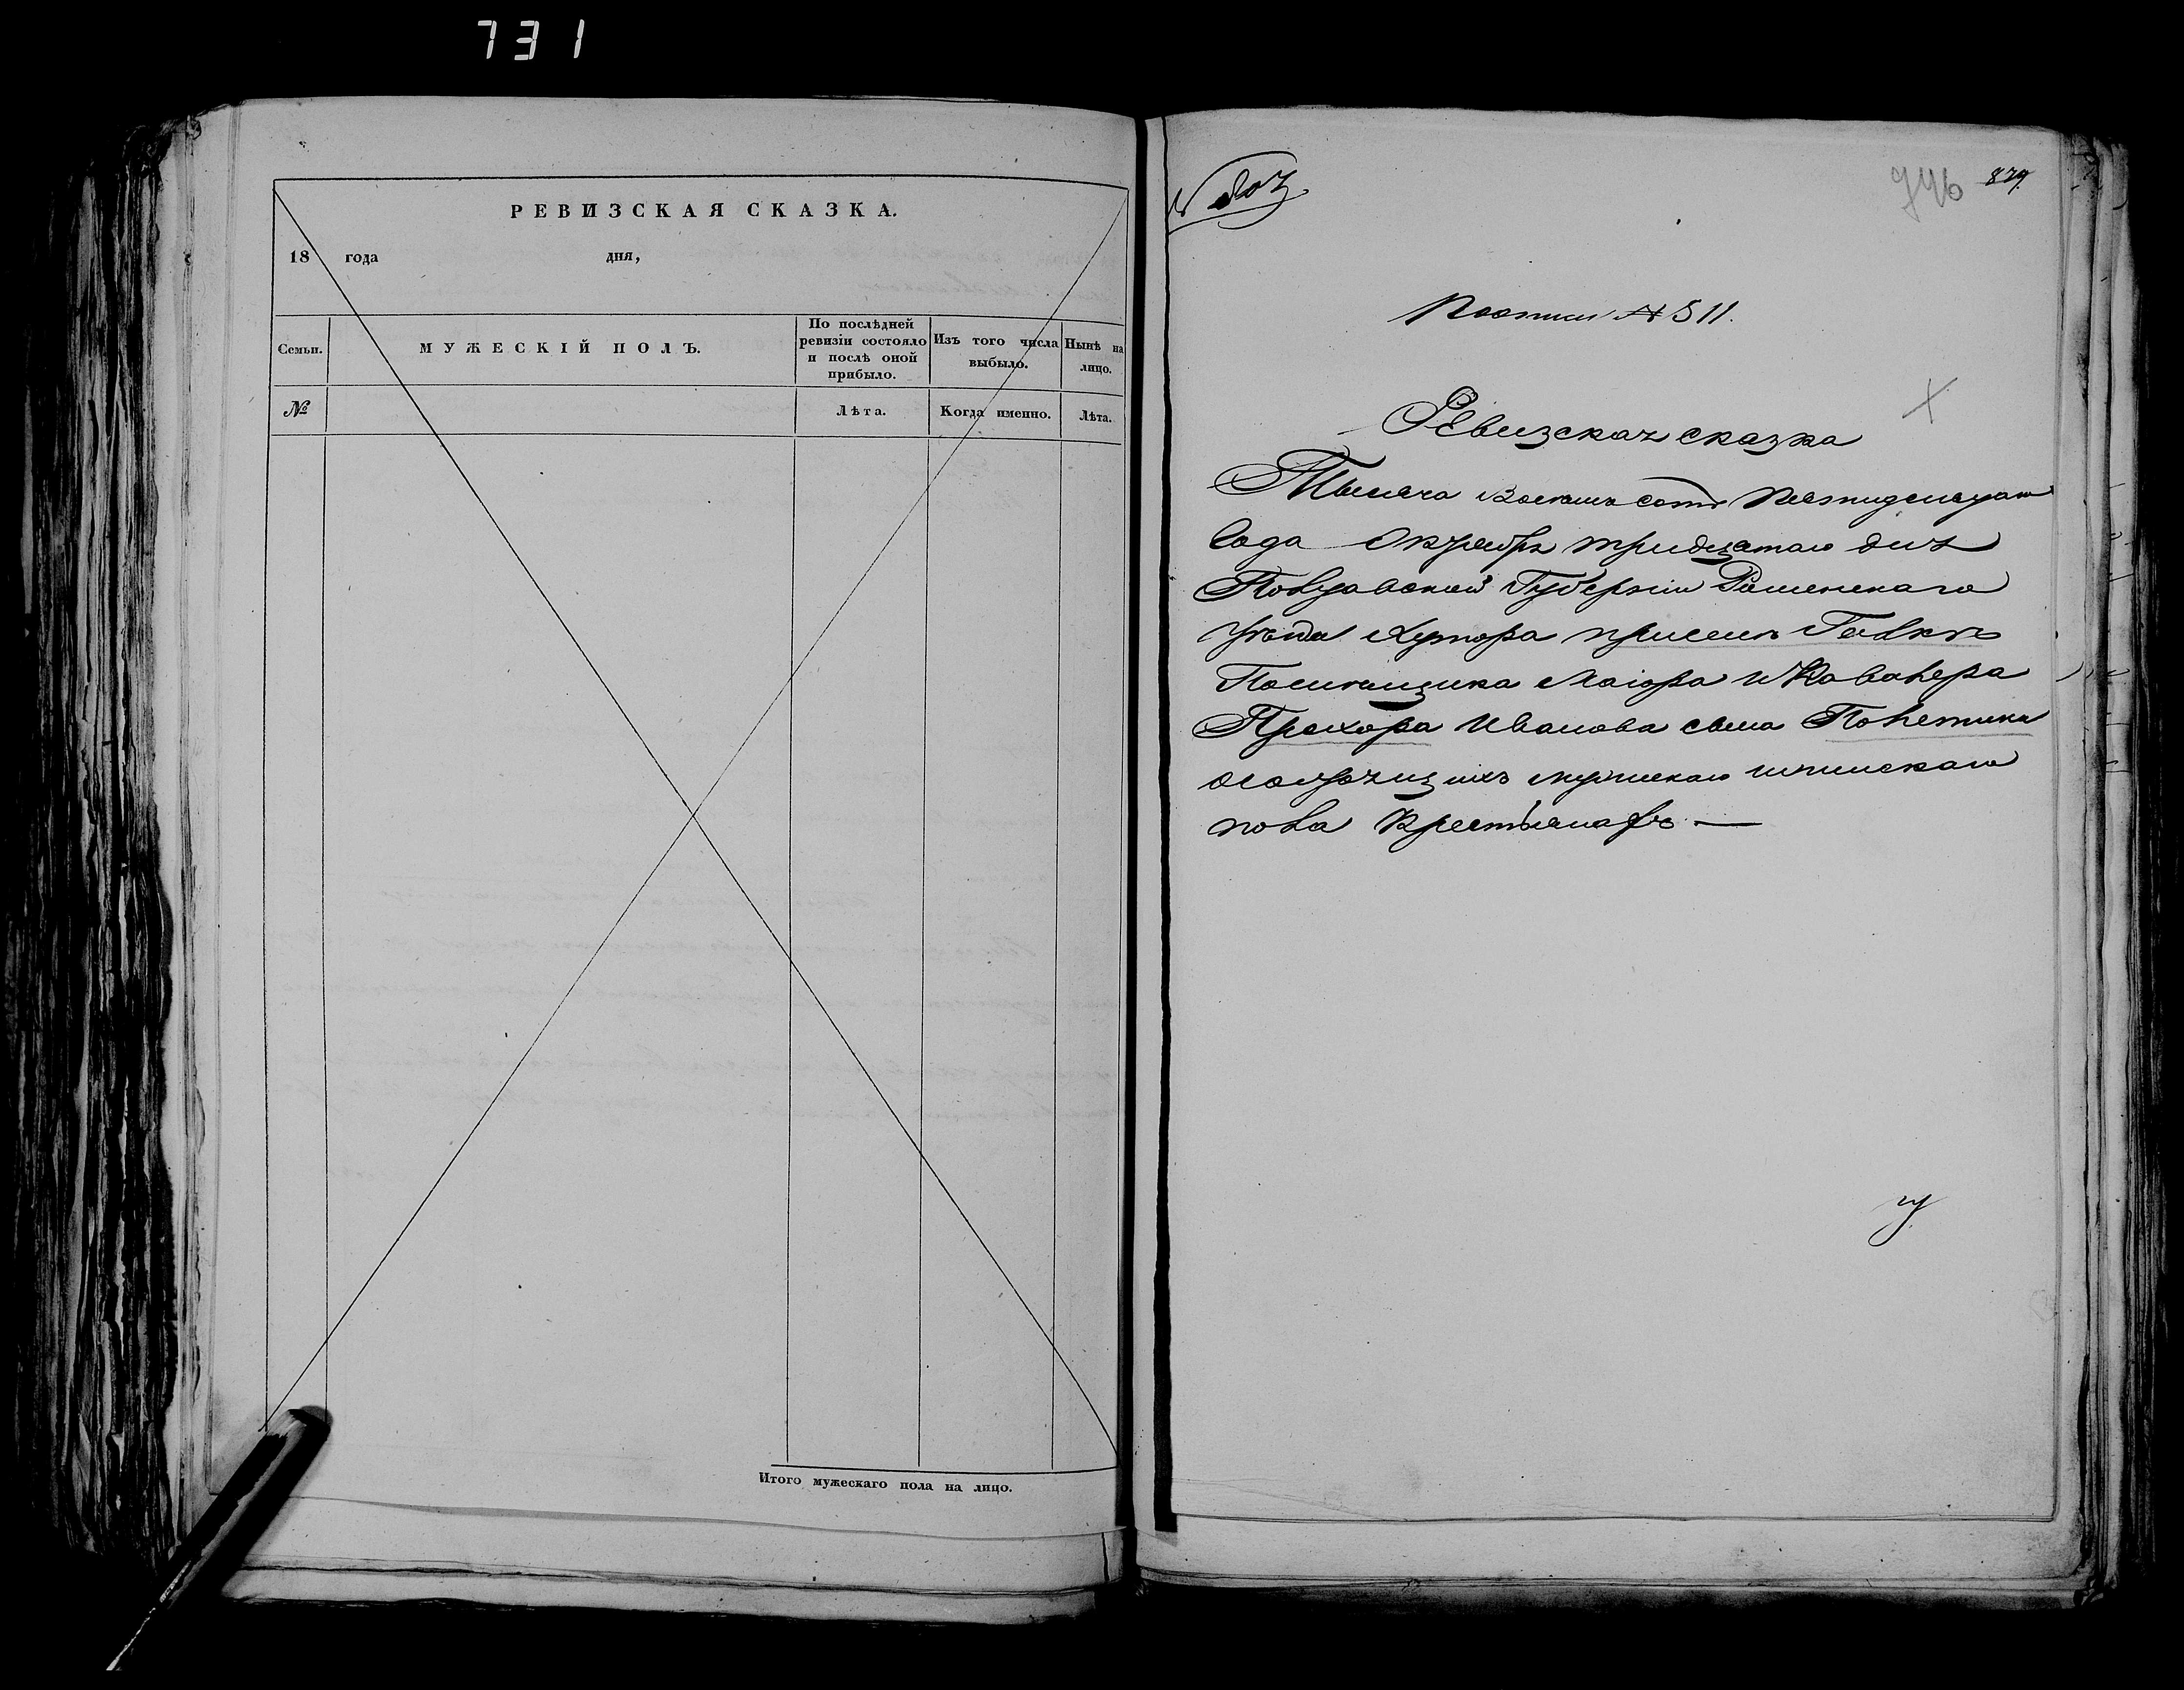 731
РЕВИЗСКАЯ СКАЗКА.
18 года дня,
Семьи.
МУЖЕСКІЙ ПОЛЪ.
По послѣдней ревизіи состояло и послѣ оной прибыло.
Изъ того числа выбыло.
Нынѣ на лицо.
№
Лѣта.
Когда именно.
Лѣта.
Итого мужескаго пола на лицо.
746 879
№ 511.
Ревизская сказка
Тысяча Восемьсотъ Пятидесятаго
Года Октября тридцатаго дня
Полтавской Губерніи Роменскаго
уѣзда Хутора при селѣ Галкѣ
Помѣщика Маіора и Кавалера
Прохора Иванова сына Полетики
о состоящихъ мужескаго и женскаго
пола Крестьянахъ —